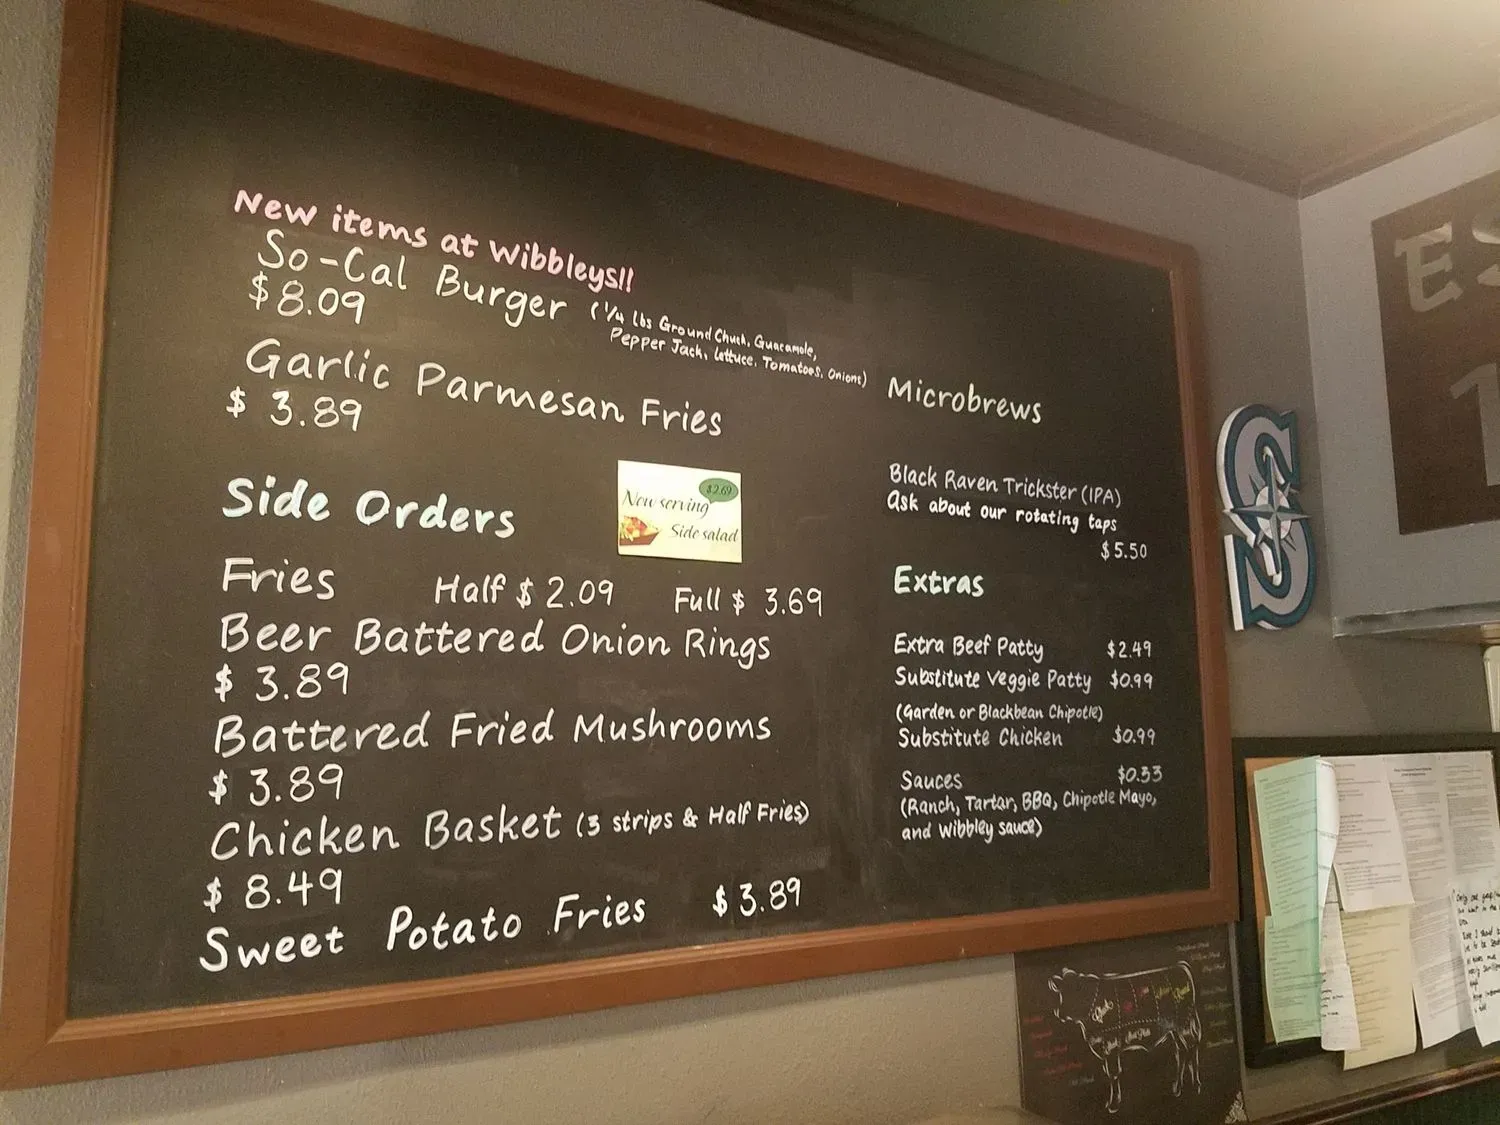 New items at Wibbleys!!
So-Cal Burger (1/4 lbs Ground Chuck, Guacamole,
Pepper Jack, Lettuce, Tomatoes, Onions)
$8.09
Garlic Parmesan Fries
$ 3.89
Side Orders
$2.69
Now serving
Side salad
Fries Half $ 2.09 Full $ 3.69
Beer Battered Onion Rings
$ 3.89
Battered Fried Mushrooms
$ 3.89
Chicken Basket (3 strips & Half Fries)
$ 8.49
Sweet Potato Fries $ 3.89
Microbrews
Black Raven Trickster (IPA)
Ask about our rotating taps
$5.50
Extras
Extra Beef Patty $2.49
Substitute Veggie Patty $0.99
(Garden or Blackbean Chipotle)
Substitute Chicken $0.99
Sauces $0.33
(Ranch, Tartar, BBQ, Chipotle Mayo,
and Wibbley sauce)
S
ES
1